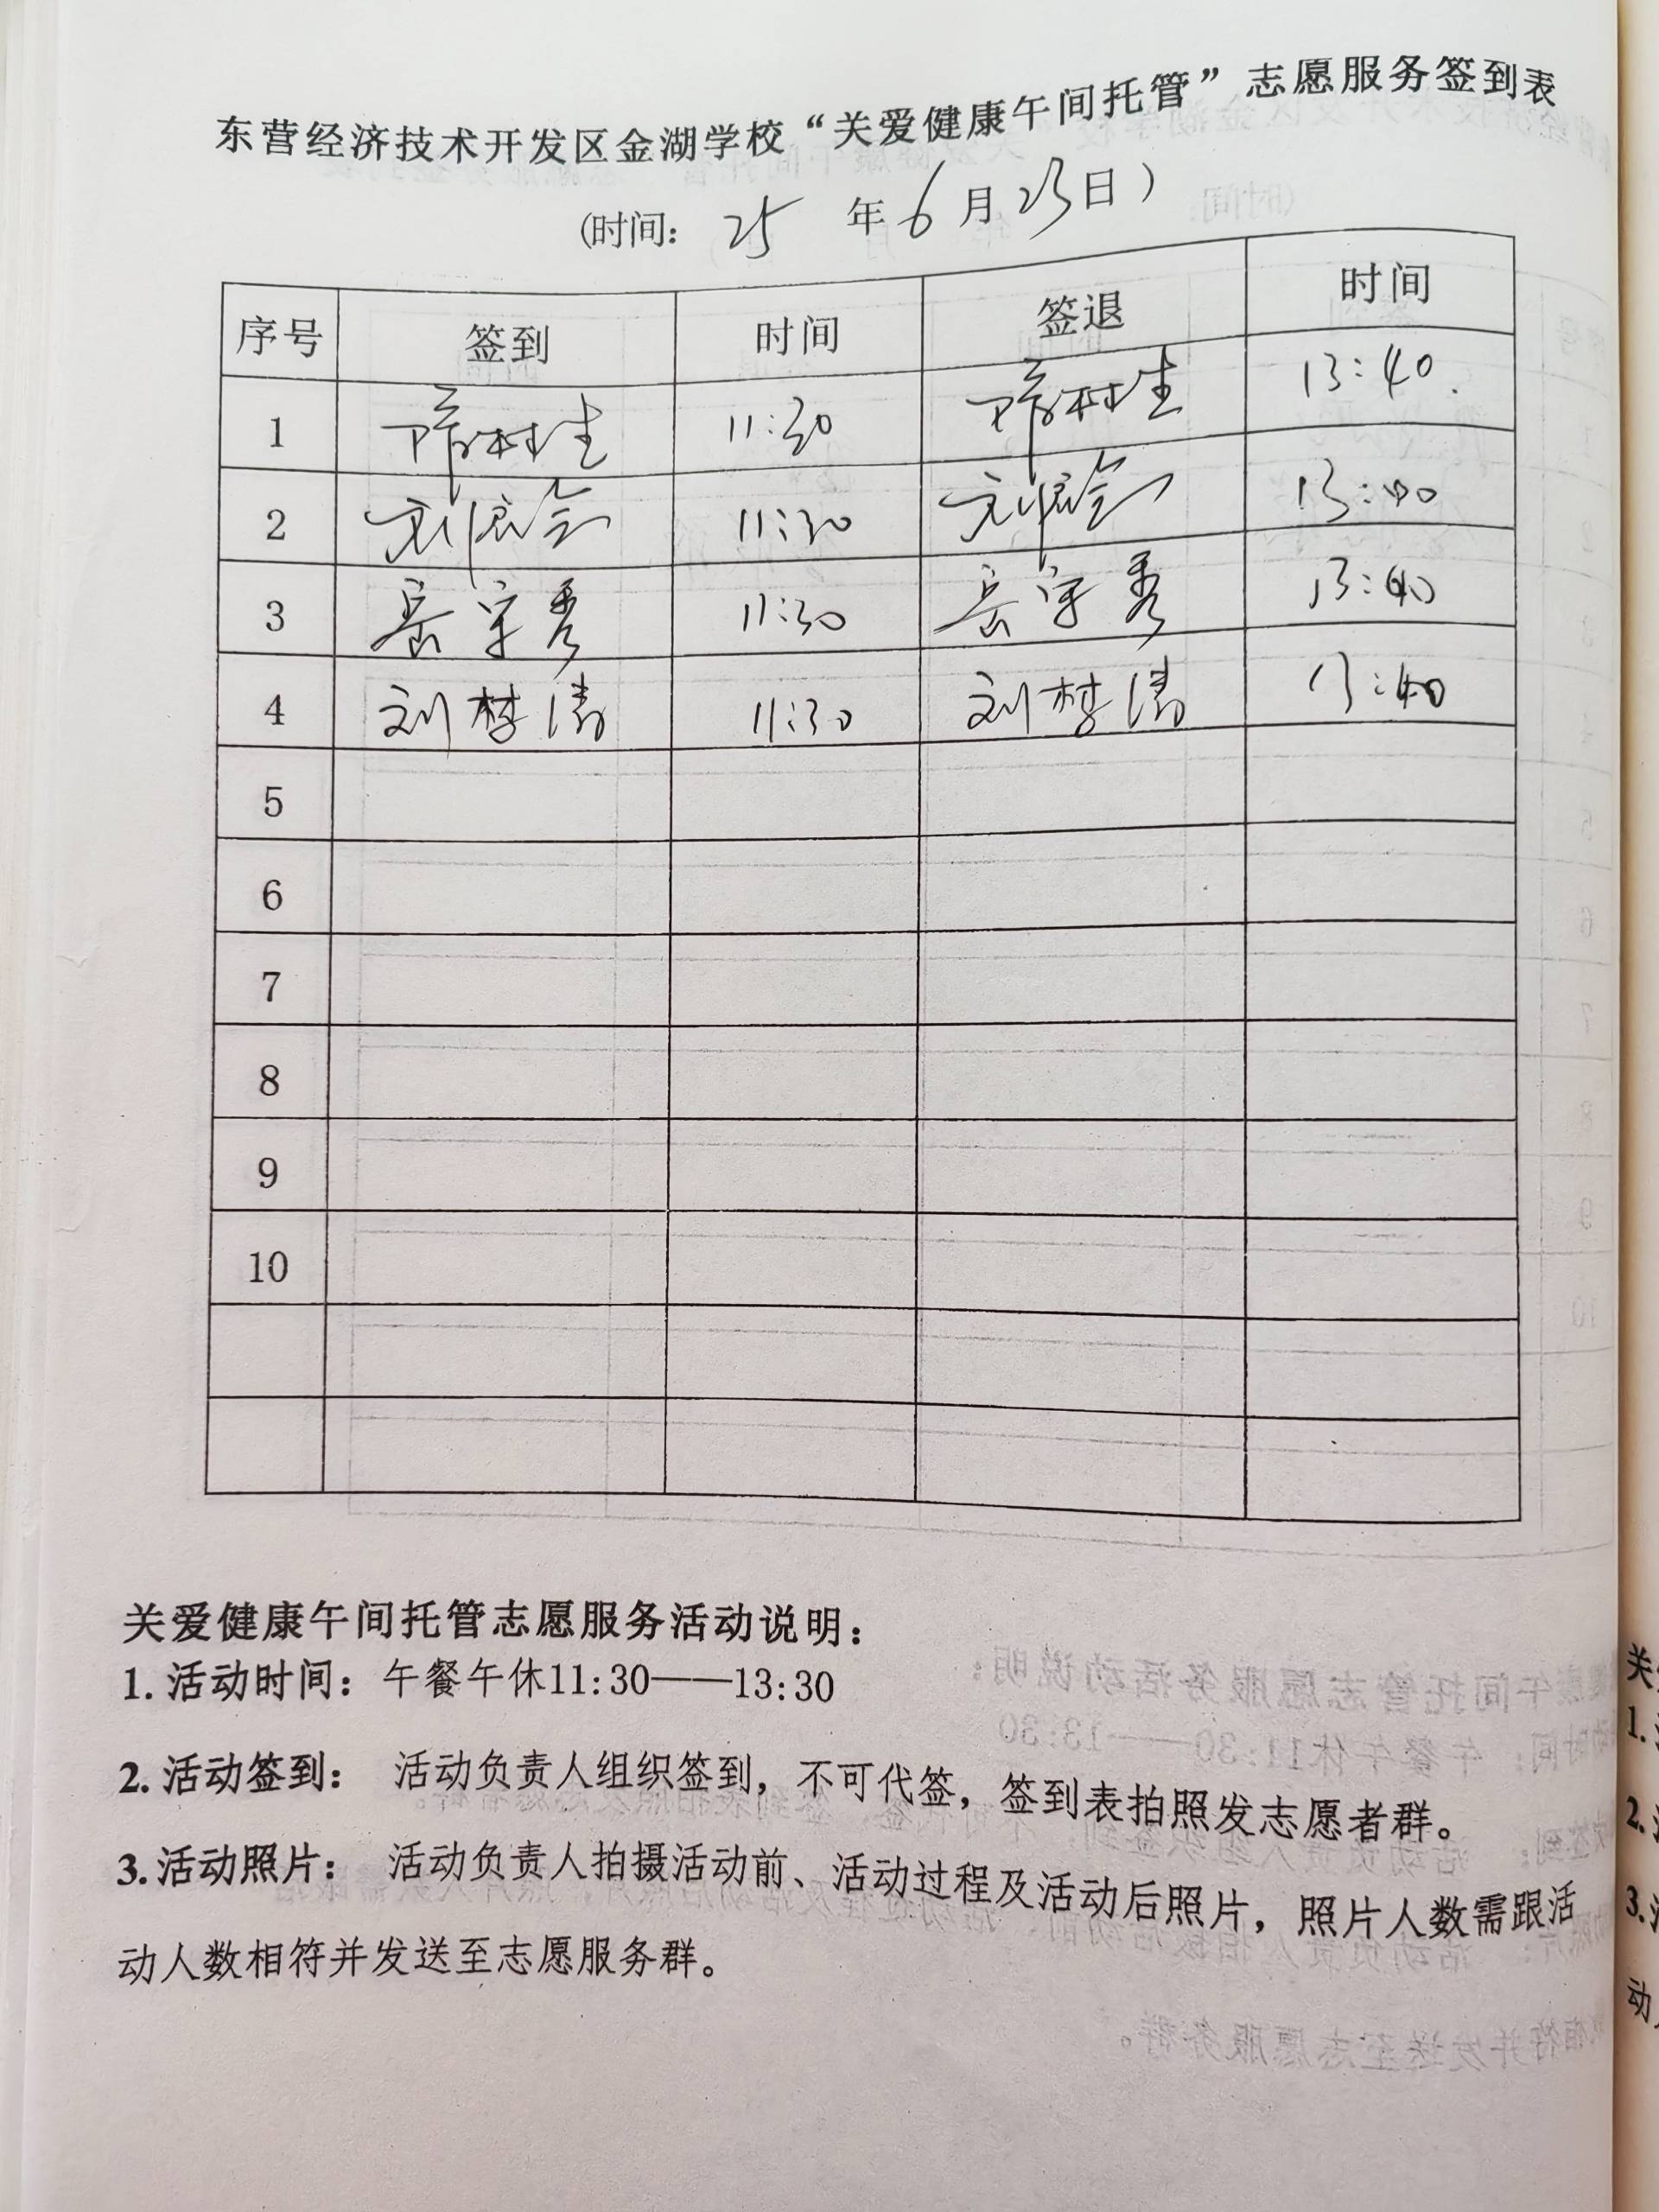 东营经济技术开发区金湖学校“关爱健康午间托管”志愿服务签到表
(时间: 25 年 6 月 23 日)
序号 签到 时间 签退 时间
1 11:30 13:40.
2 11:30 13:40
3 岳宗秀 11:30 岳宗秀 13:40
4 刘梦清 11:30 刘梦清 13:40
5
6
7
8
9
10
关爱健康午间托管志愿服务活动说明:
1. 活动时间: 午餐午休11:30——13:30
2. 活动签到: 活动负责人组织签到, 不可代签, 签到表拍照发志愿者群。
3. 活动照片: 活动负责人拍摄活动前、活动过程及活动后照片, 照片人数需跟活
动人数相符并发送至志愿服务群。
关
1.
2.
3.
动